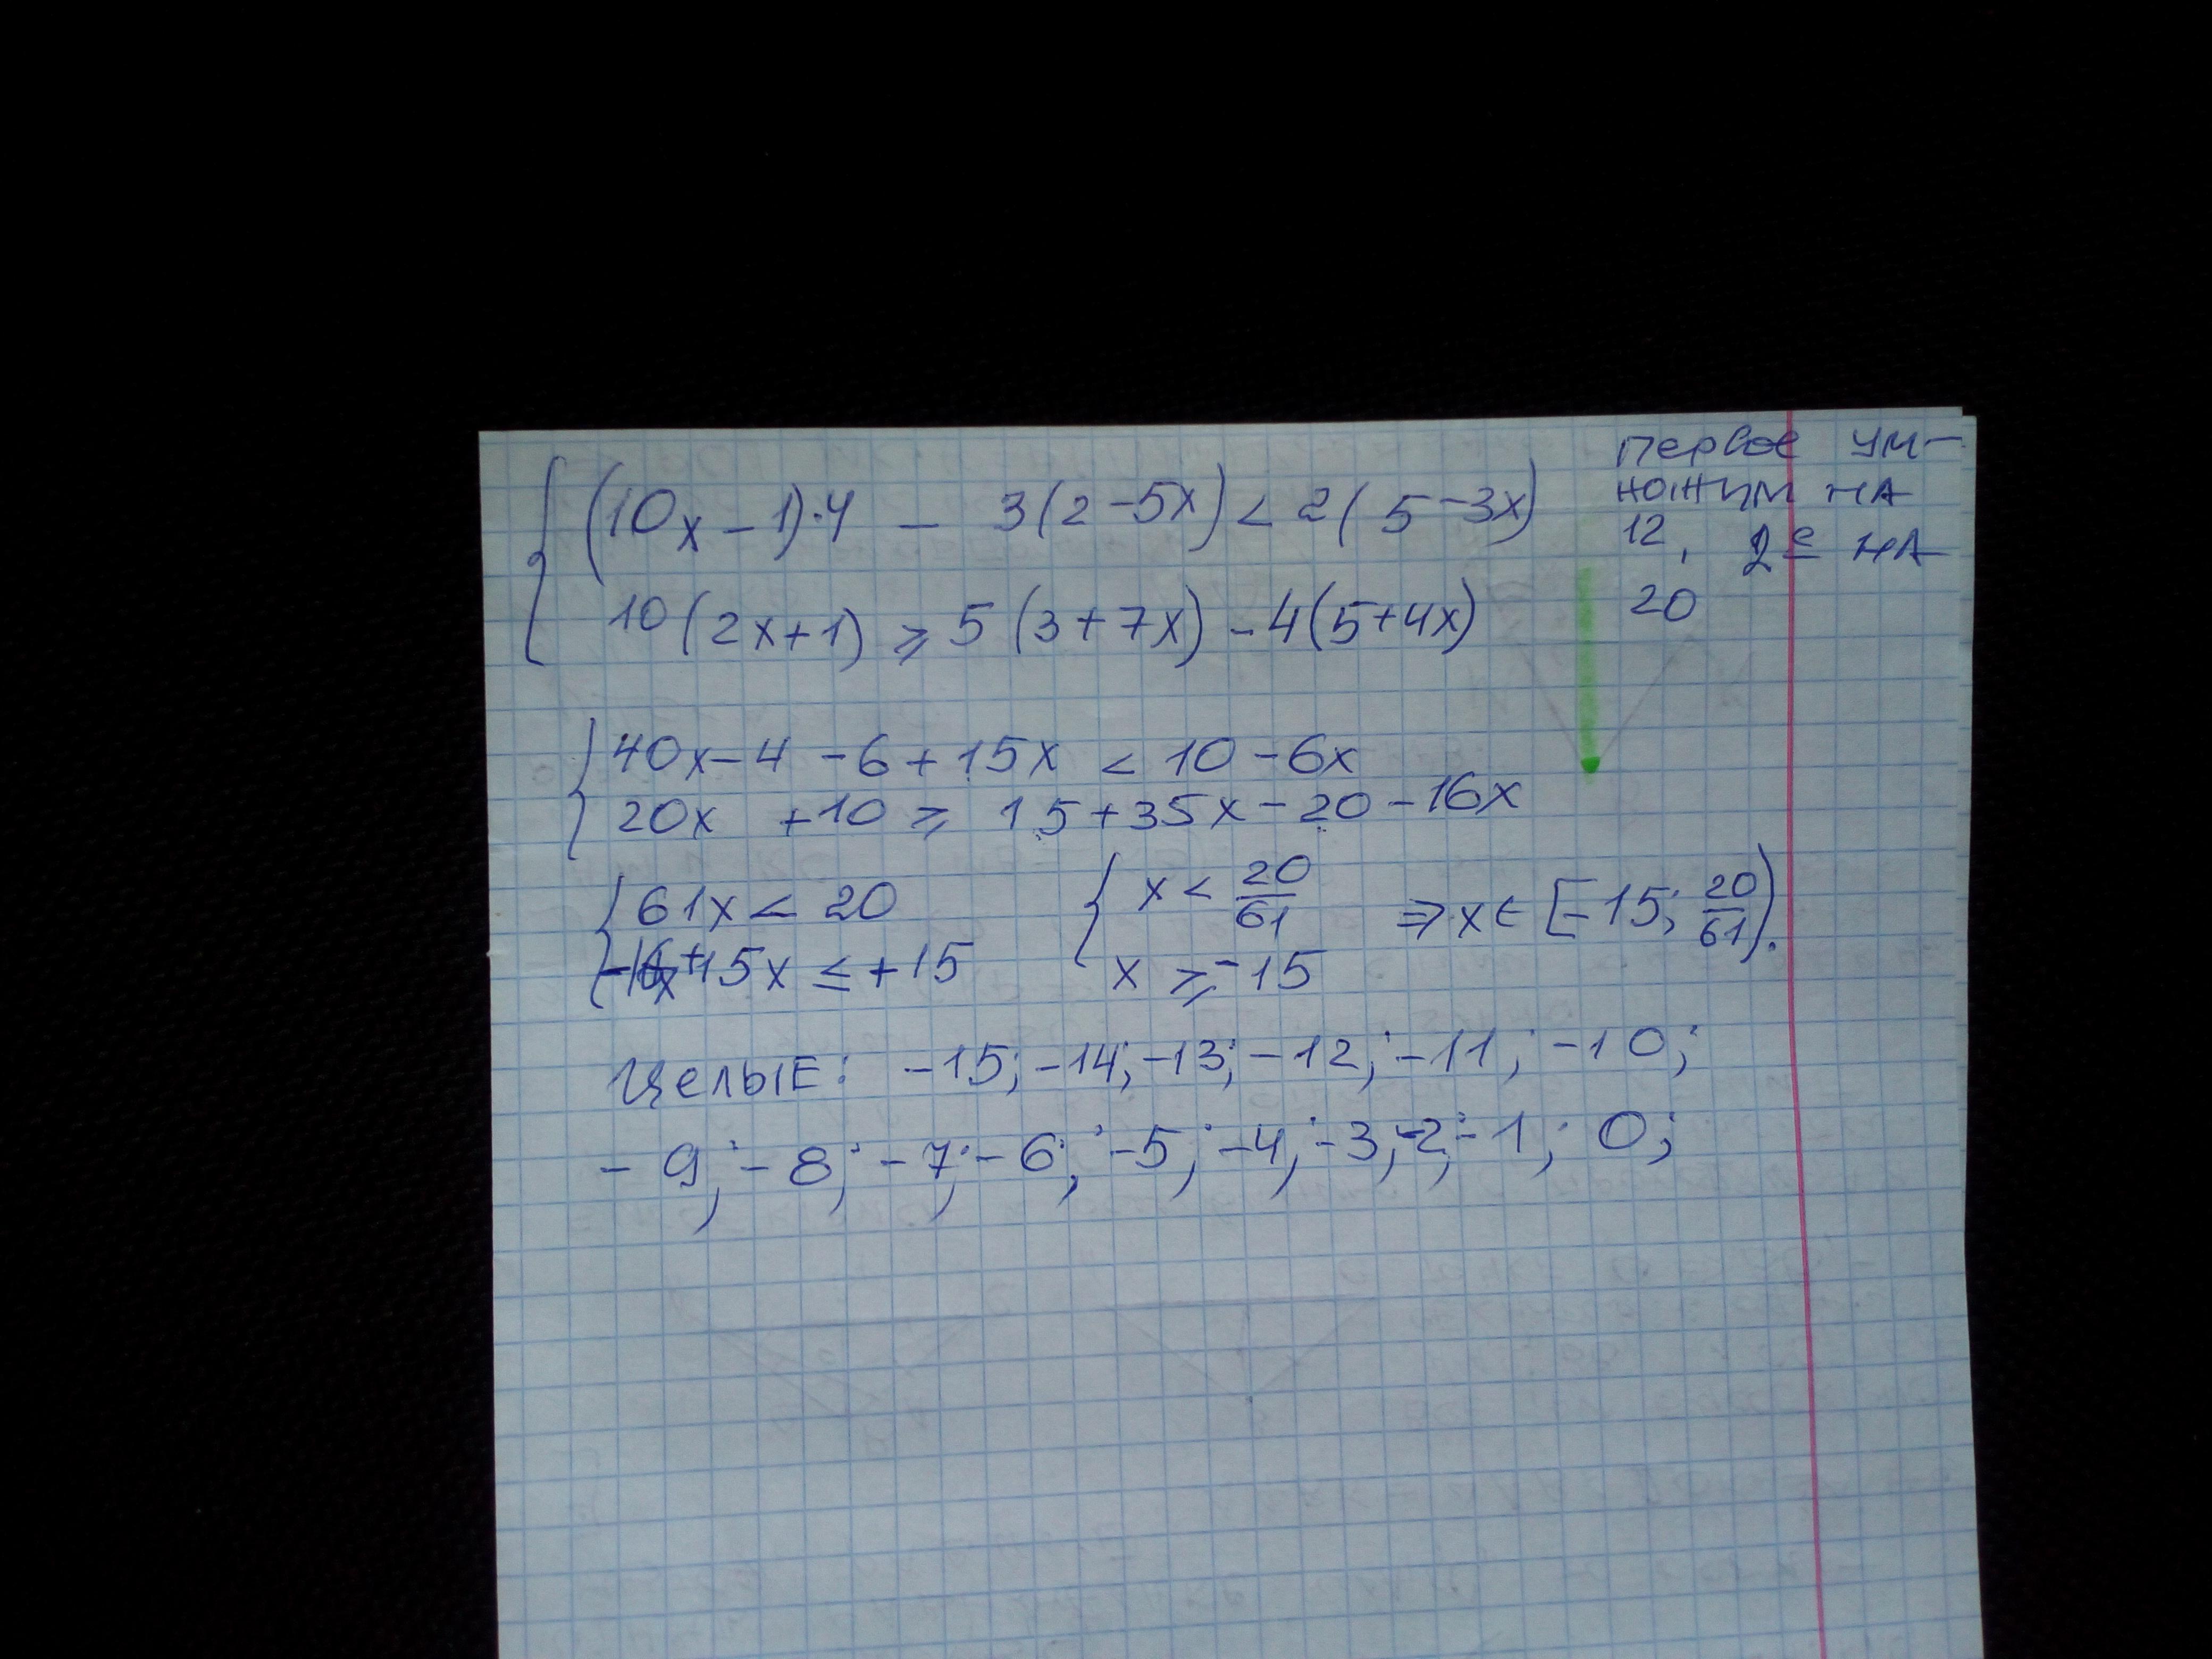 (10x - 1)·4 - 3(2 - 5x) < 2(5 - 3x)
10(2x + 1) ⩾ 5(3 + 7x) - 4(5 + 4x)
первое ум-
ножим на
12, 2е на
20
40x - 4 - 6 + 15x < 10 - 6x
20x + 10 ⩾ 15 + 35x - 20 - 16x
61x < 20
15x ≤ +15
x < 20/61
x ⩾ -15
⇒ x ∈ [-15; 20/61).
Целые: -15; -14; -13; -12; -11; -10;
-9; -8; -7; -6; -5; -4; -3; -2; -1; 0;